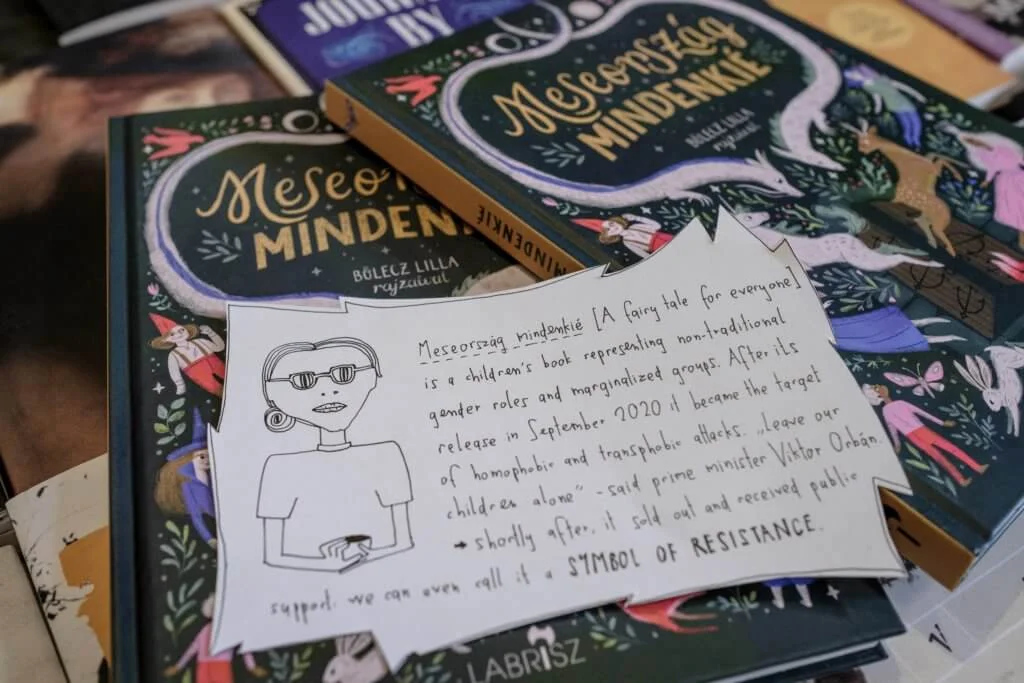 JOURN
BY
Meseország
MINDENKIÉ
BÖLECZ LILLA
rajzaival
MINDENKIÉ
Meseo
MINDEN
BÖLECZ LILLA
rajzaival
Meseország mindenkié [A fairy tale for everyone]
is a children's book representing non-traditional
gender roles and marginalized groups. After its
release in September 2020 it became the target
of homophobic and transphobic attacks. „Leave our
children alone" - said prime minister Viktor Orbán.
→ shortly after, it sold out and received public
support. we can even call it a SYMBOL OF RESISTANCE.
LABRISZ